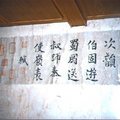 次韻
伯固遊
蜀岡送
叔師奉
使嶺表
軾